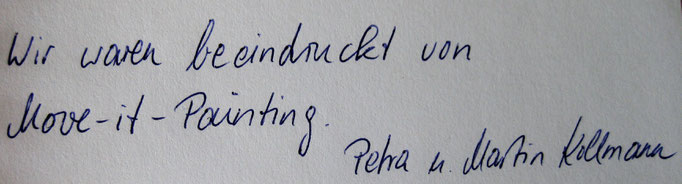 Wir waren beeindruckt von
Move-it-Painting.
Petra u. Martin Kollmann